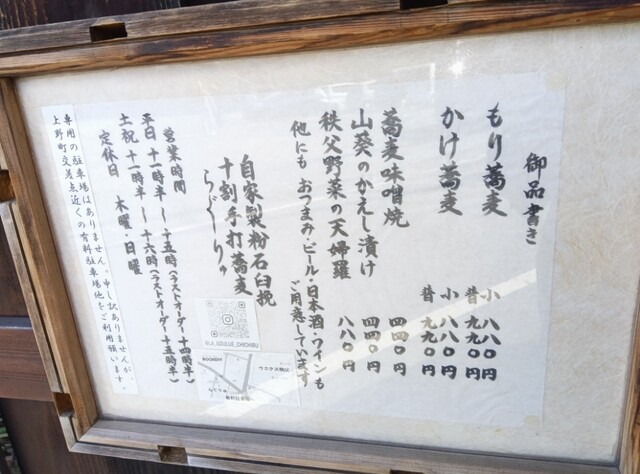 御品書き
もり蕎麦 小 八八〇円
昔 九九〇円
かけ蕎麦 小 八八〇円
昔 九九〇円
蕎麦味噌焼 四四〇円
山葵のかえし漬け 四四〇円
秩父野菜の天婦羅 八八〇円
他にも おつまみ・ビール・日本酒・ワインも
ご用意しています
自家製粉石臼挽
十割手打蕎麦
らぐ〜り〃
営業時間
平日 十一時半〜十五時(ラストオーダー十四時半)
土祝 十一時半〜十六時(ラストオーダー十五時半)
定休日 木曜・日曜
専用の駐車場はありません。申し訳ありませんが、
上野町交差点近くの有料駐車場他をご利用願います。
BOOKOFF